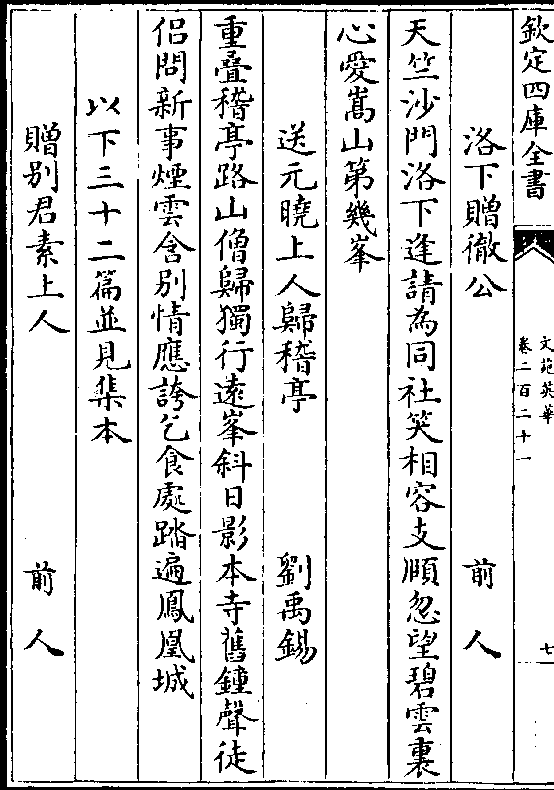 欽定四庫全書
文苑英華
卷二百二十一
七
洛下贈徹公 前人
天竺沙門洛下逢請為同社笑相容支頤忽望碧雲裏
心愛嵩山第幾峯
送元曉上人歸稽亭 劉禹錫
重疊稽亭路山僧歸獨行遠峯斜日影本寺舊鐘聲徒
侣問新事煙雲含別情應誇乞食處踏遍鳳凰城
以下三十二篇並見集本
贈別君素上人 前人